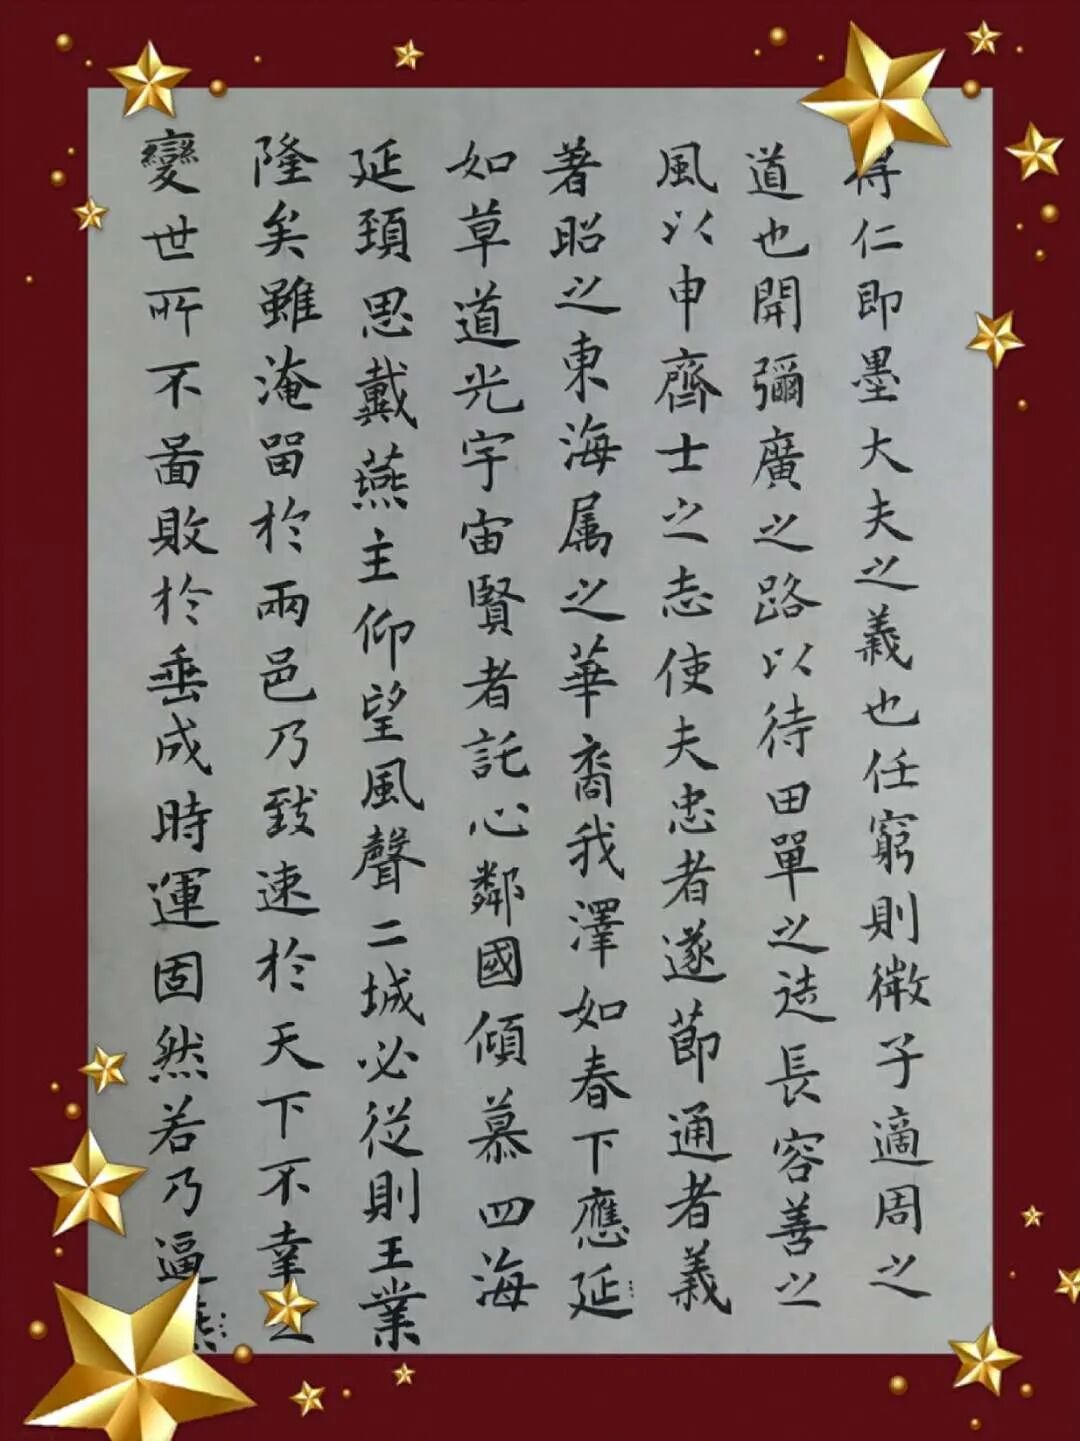 得仁即墨大夫之義也任窮則微子適周之
道也開彌廣之路以待田單之徒長容善之
風以申齊士之志使夫忠者遂節通者義
著昭之東海属之華裔我澤如春下應延
如草道光宇宙賢者託心鄰國傾慕四海
延頸思戴燕主仰望風聲二城必從則王業
隆矣雖淹留於兩邑乃致速於天下不幸之
變世所不啚敗於垂成時運固然若乃逼